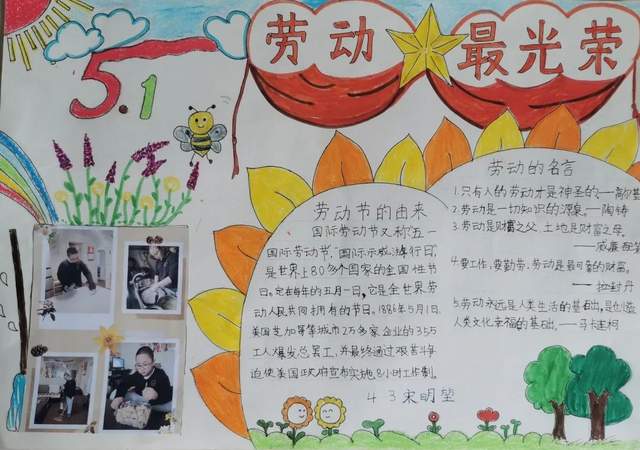 劳动最光荣
5.1
劳动节的由来
国际劳动节又称"五一
国际劳动节,"国际示威游行日",
是世界上80多个国家的全国性节
日。定在每年的五月一日,它是全世界劳
动人民共同拥有的节日。1886年5月1日,
美国芝加哥等城市
工人爆发总罢工,并最终通过艰苦斗争
迫使美国政府宣布实施8小时工作制。
4 3 宋明堃
劳动的名言
1.只有人的劳动才是神圣的。——高尔基
2.劳动是一切知识的源泉。——陶铸
3.劳动是财富之父,土地是财富之母。
——威廉·配第
4.要工作,要勤劳,劳动是最可靠的财富。
——拉封丹
5.劳动永远是人类生活的基础,是创造
人类文化幸福的基础。——马卡连柯